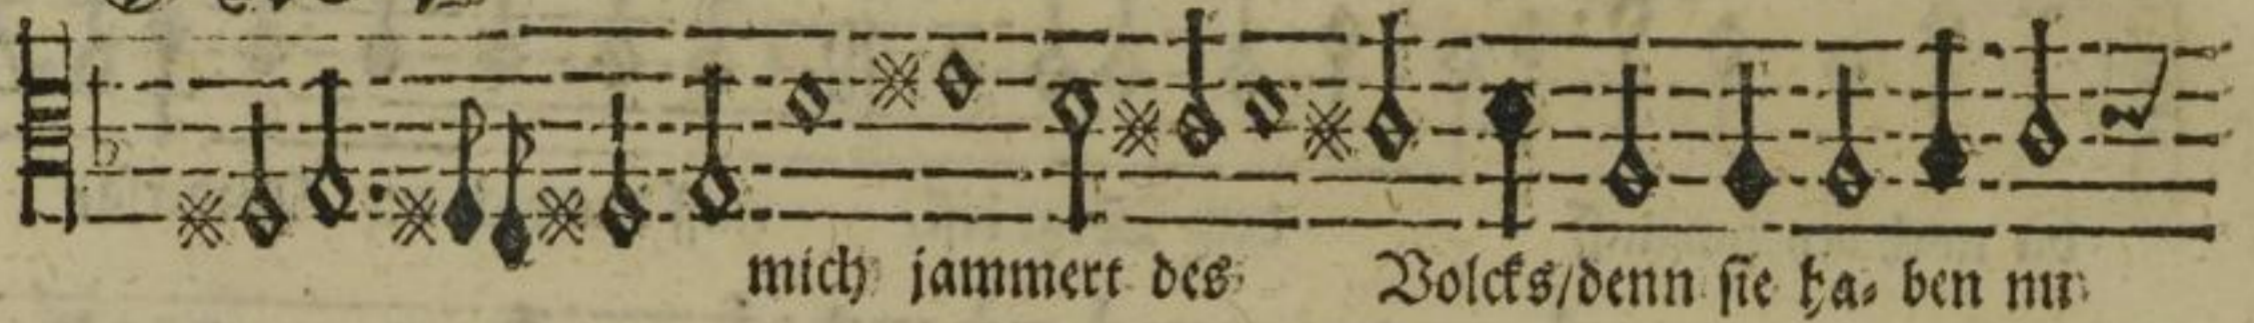 mich jammert des Volcks/denn sie ha- ben nu